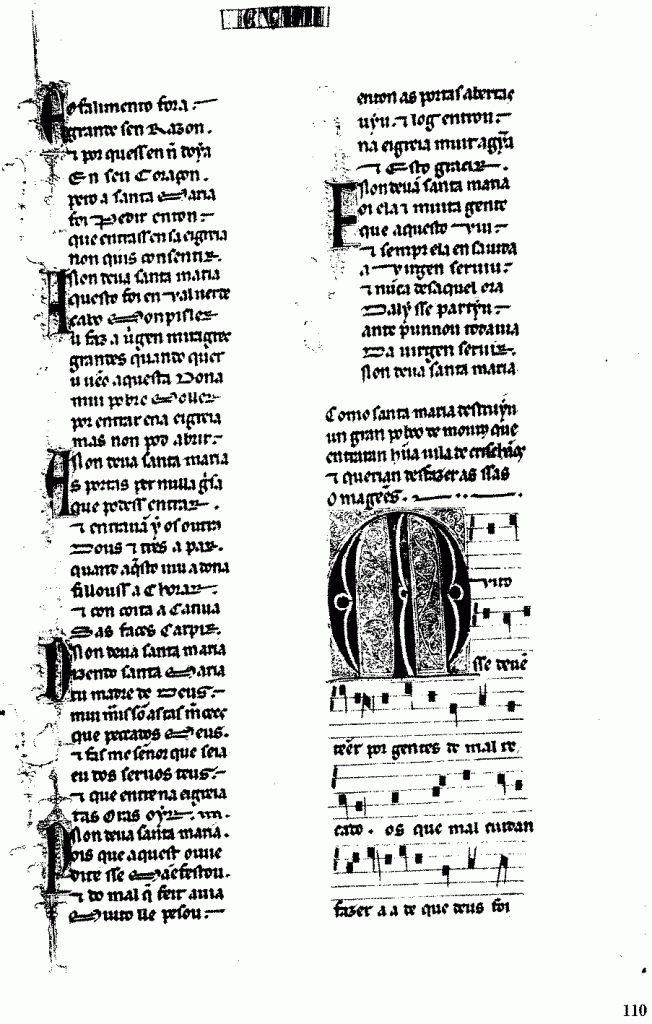 E o falimento fora
grande sen Razon.
⁊ por quessen ñ doya
En seu Coraçon.
pero a santa Maria
foi Pedir enton
que entrass en sa eigreia
non quis consentir.
Non deua santa maria
A questo foi en valuerde
cabo Monpisler
u faz a uirgen miragres
grandes quando quer
u uẽo aquesta Dona
mui pobre Moller
por entrar ena eigreia
mas non pod abrir
Non deua santa maria
As portas per nulla g̃sa
que podess entrar
⁊ entrauã y os outros
Dous ⁊ tres a par.
quand aq̃sto uiu a dona
fillouss a Chorar
⁊ con coita a Carpir
Sas faces
Non deua santa maria
Dizendo santa Maria
tu madre de Deus
mui mais son as tas m̃cees
que peccados Meus.
⁊ fas me señor que seia
eu dos seruos teus
⁊ que entre na eigreia
tas Oras oyr
Non deua santa maria.
Pois que aquest ouue
dito sse Mãefestou.
⁊ do mal q̃ feit auia
Muito lle pesou
enton as portas abertas
uyu ⁊ log entrou
na eigreia muit agỹa
⁊ Esto gracir
Non deua santa maria
Foi ela ⁊ muita gente
que aquesto viu
⁊ sempr ela en sa uida
a virgen seruiu
⁊ nũca des aquel ora
Daly sse partyu
ante punnou todauia
Da uirgen seruir.
Non deua santa maria
Como santa maria destruyu
un gran poboo de mouros que
entraran hũa uila de crischãos
⁊ querian desfazer as ssas
Omagẽes.
Muito
sse deuẽ
tẽer por gentes de mal re
cado. os que mal cuidan
fazer aa de que deus foi
110